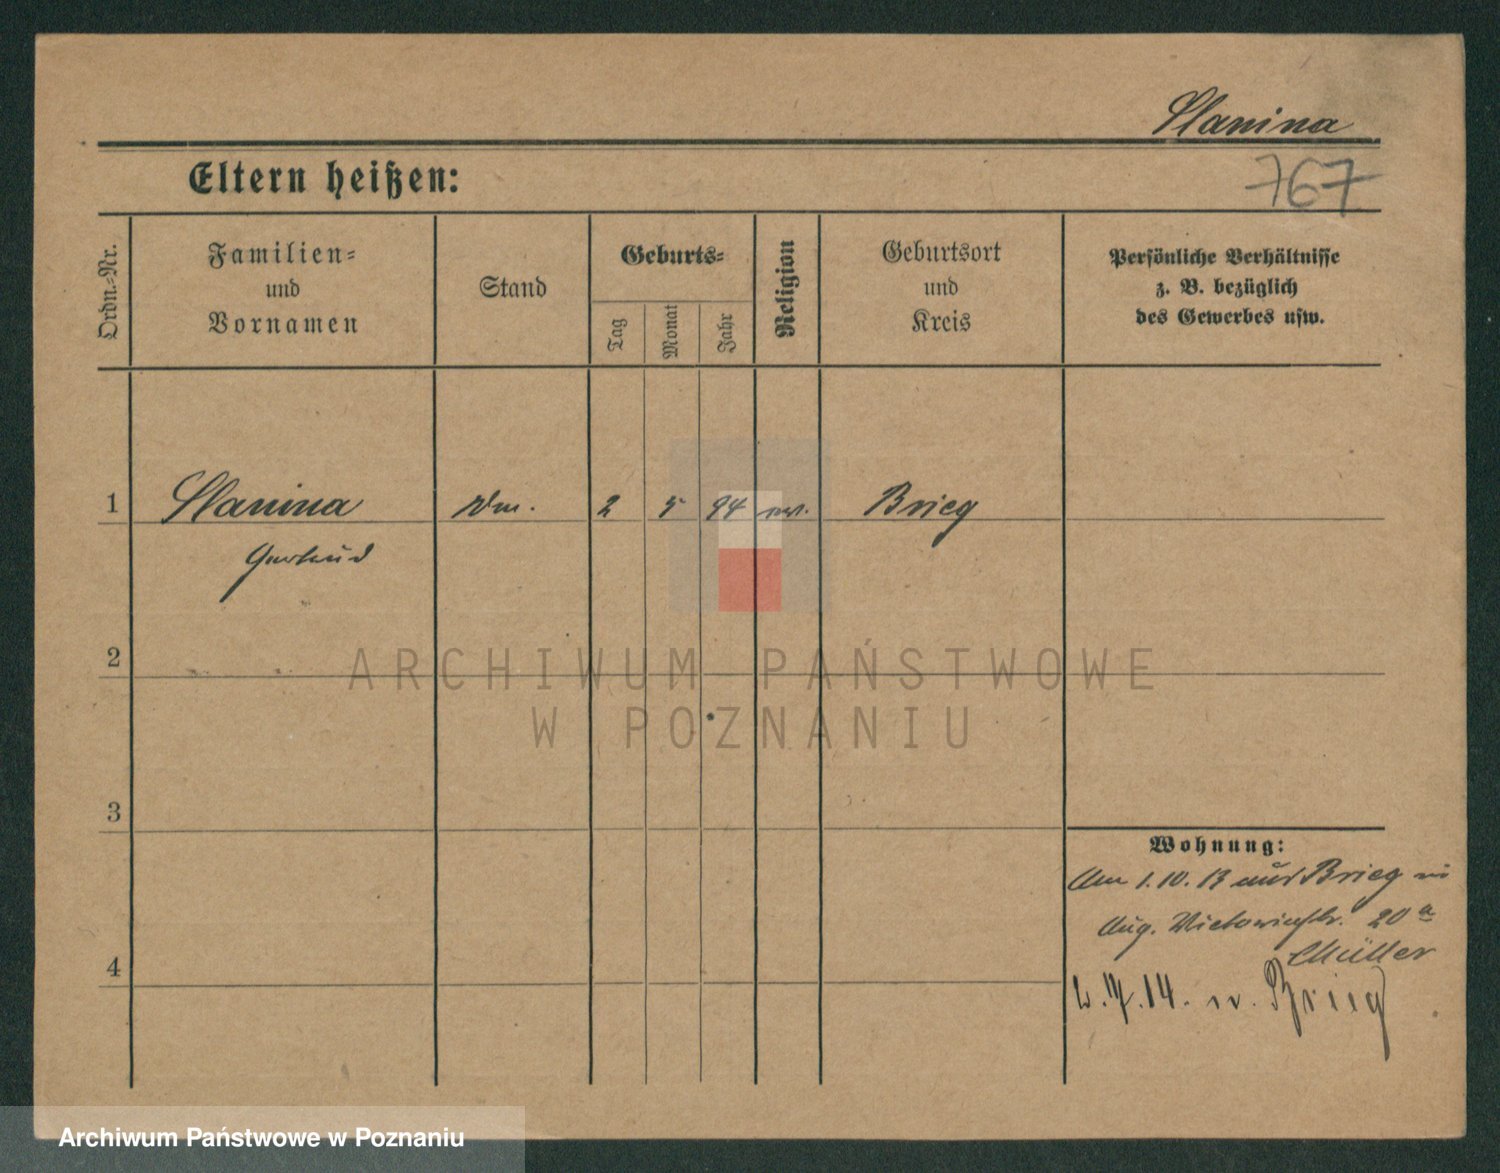 Slanina
Eltern heißen:
767
Ordn.-Nr.
Familien=
und
Vornamen
Stand
Geburts=
Tag
Monat
Jahr
Religion
Geburtsort
und
Kreis
Persönliche Verhältnisse
z. B. bezüglich
des Gewerbes usw.
1 Slanina 2 5 94 Brieg
Gertrud
2
ARCHIWUM PAŃSTWOWE
W POZNANIU
3
Wohnung:
Am 1.10.13 aus Brieg in
Aug. Victoriastr. 20a
Müller
4
14. n. Brieg
Archiwum Państwowe w Poznaniu